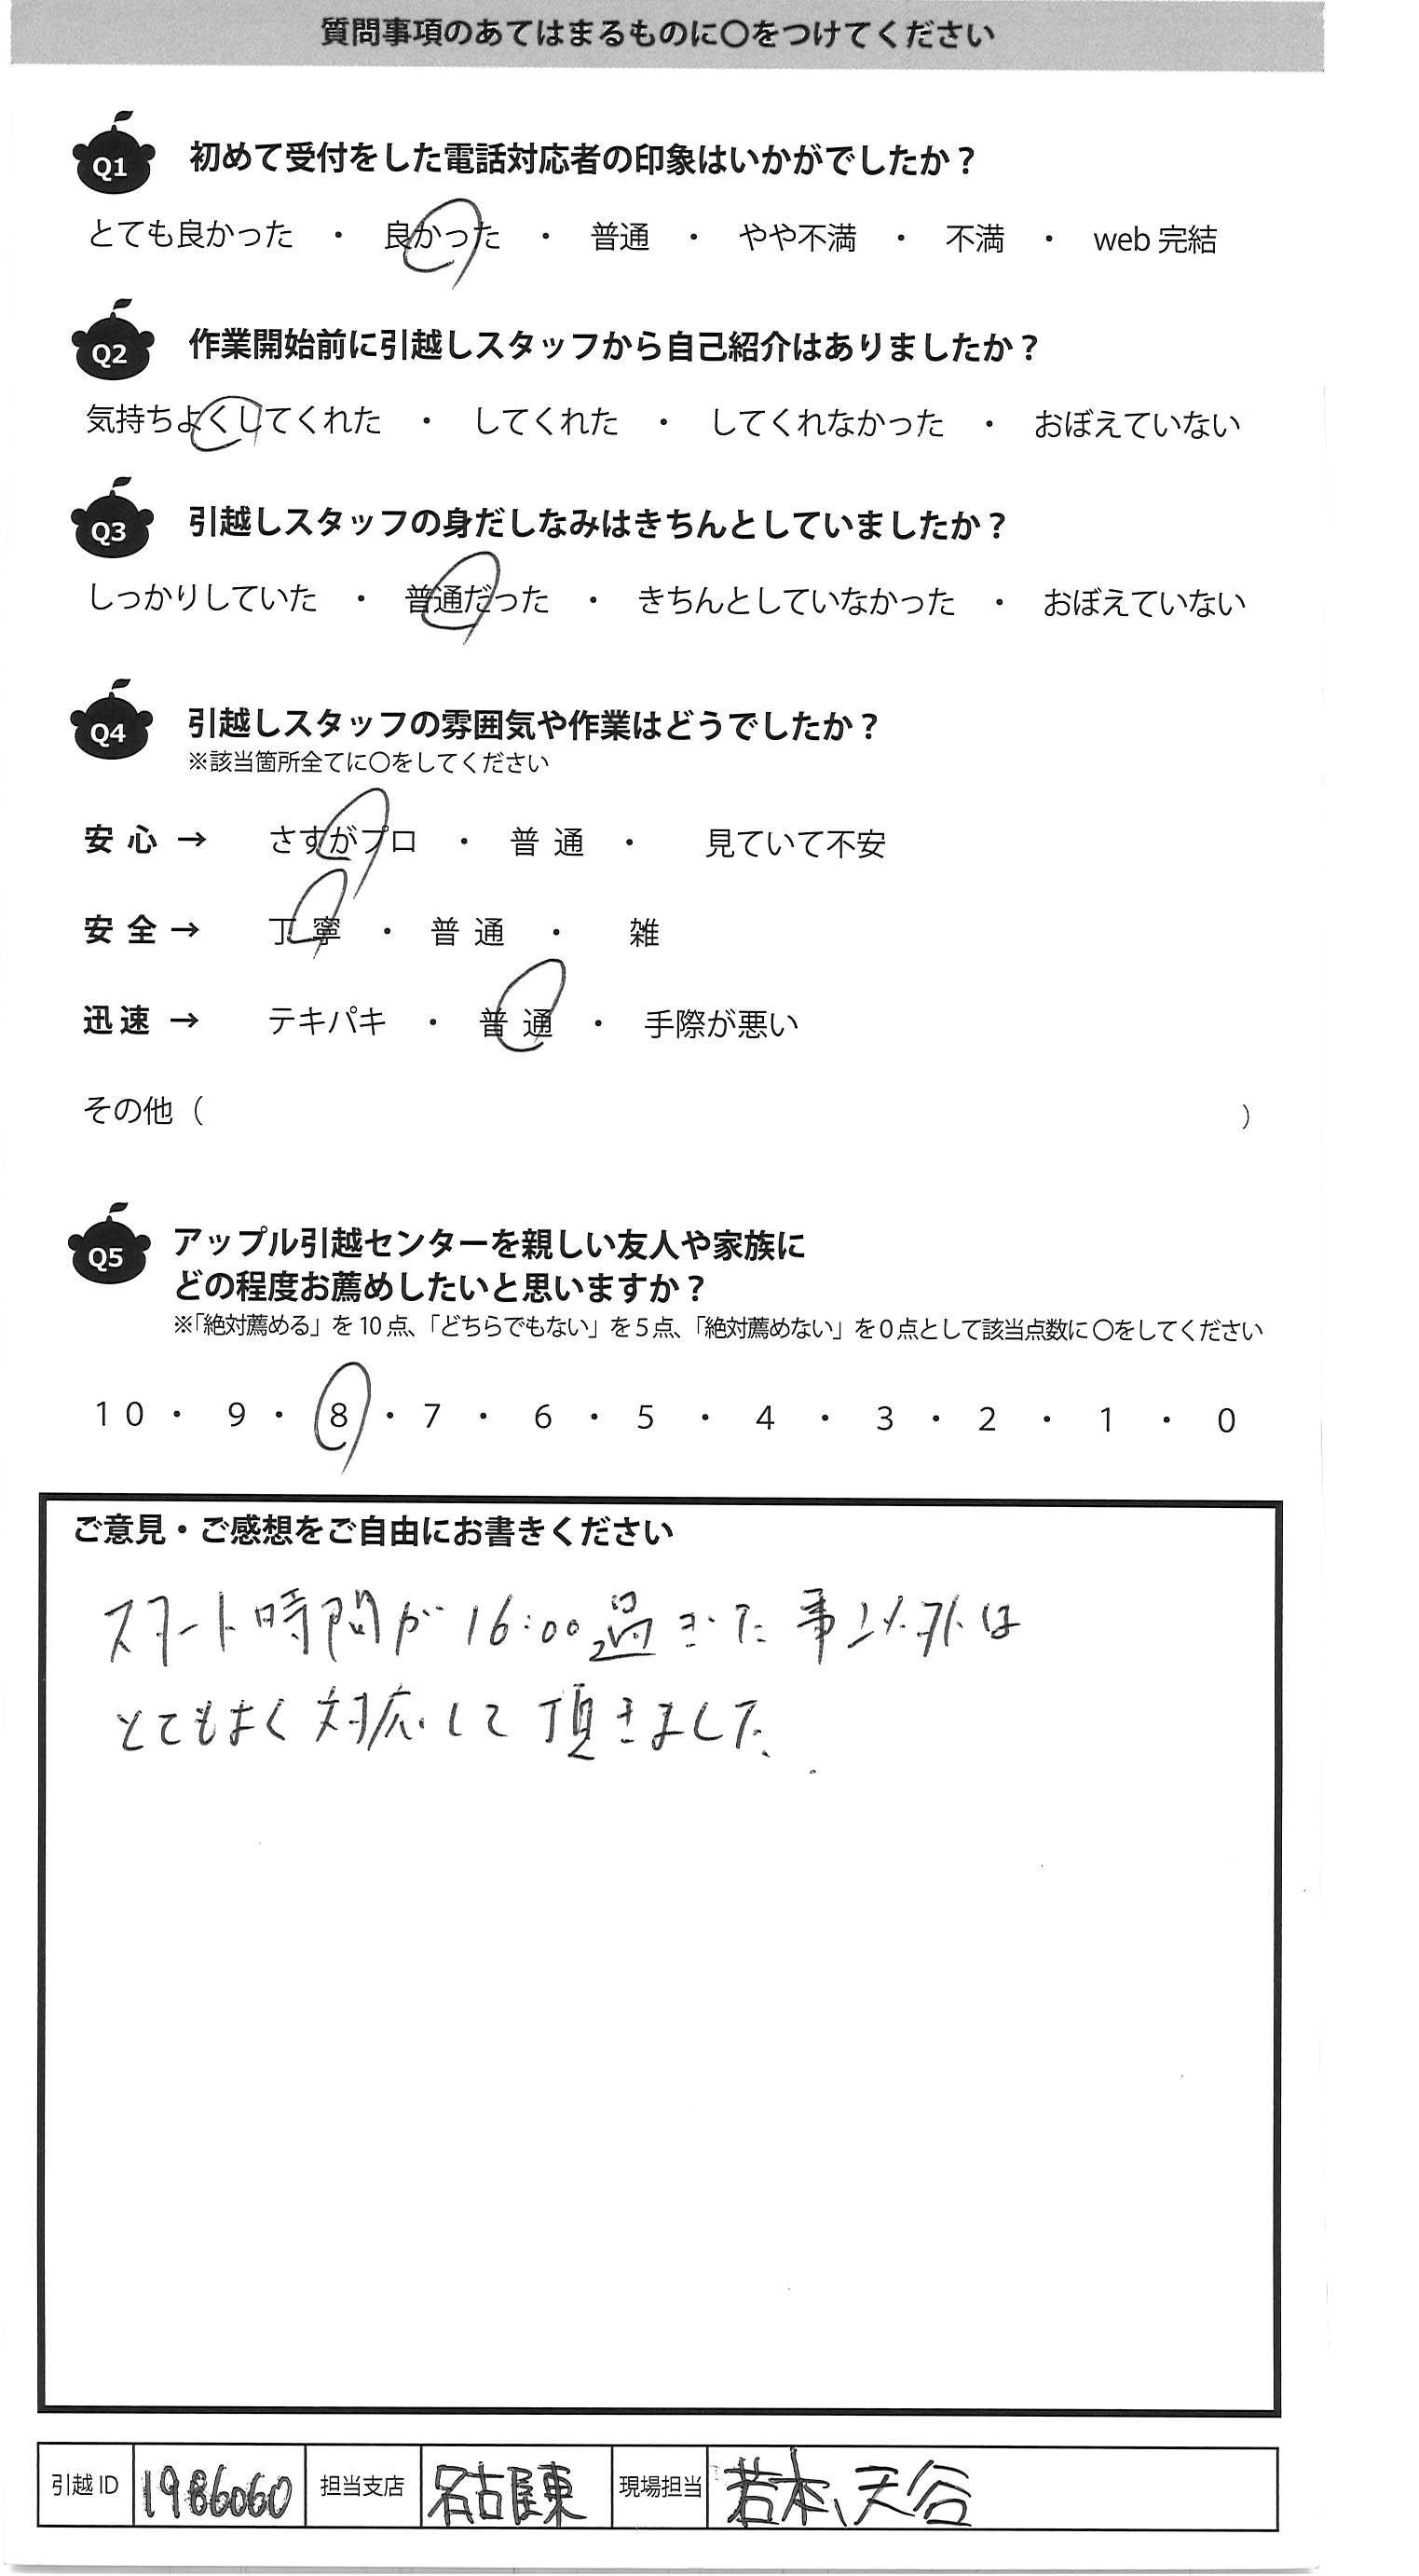 質問事項のあてはまるものに〇をつけてください
Q1 初めて受付をした電話対応者の印象はいかがでしたか？
とても良かった ・ 良かった ・ 普通 ・ やや不満 ・ 不満 ・ web 完結
Q2 作業開始前に引越しスタッフから自己紹介はありましたか？
気持ちよくしてくれた ・ してくれた ・ してくれなかった ・ おぼえていない
Q3 引越しスタッフの身だしなみはきちんとしていましたか？
しっかりしていた ・ 普通だった ・ きちんとしていなかった ・ おぼえていない
Q4 引越しスタッフの雰囲気や作業はどうでしたか？
※該当箇所全てに〇をしてください
安心 → さすがプロ ・ 普通 ・ 見ていて不安
安全 → 丁寧 ・ 普通 ・ 雑
迅速 → テキパキ ・ 普通 ・ 手際が悪い
その他（ ）
Q5 アップル引越センターを親しい友人や家族に
どの程度お薦めしたいと思いますか？
※「絶対薦める」を10点、「どちらでもない」を5点、「絶対薦めない」を0点として該当点数に〇をしてください
10 ・ 9 ・ 8 ・ 7 ・ 6 ・ 5 ・ 4 ・ 3 ・ 2 ・ 1 ・ 0
ご意見・ご感想をご自由にお書きください
スタート時間が16:00過ぎた事以外は
とてもよく対応して頂きました。
引越ID 1986060 担当支店 名古屋東 現場担当 若本、天谷